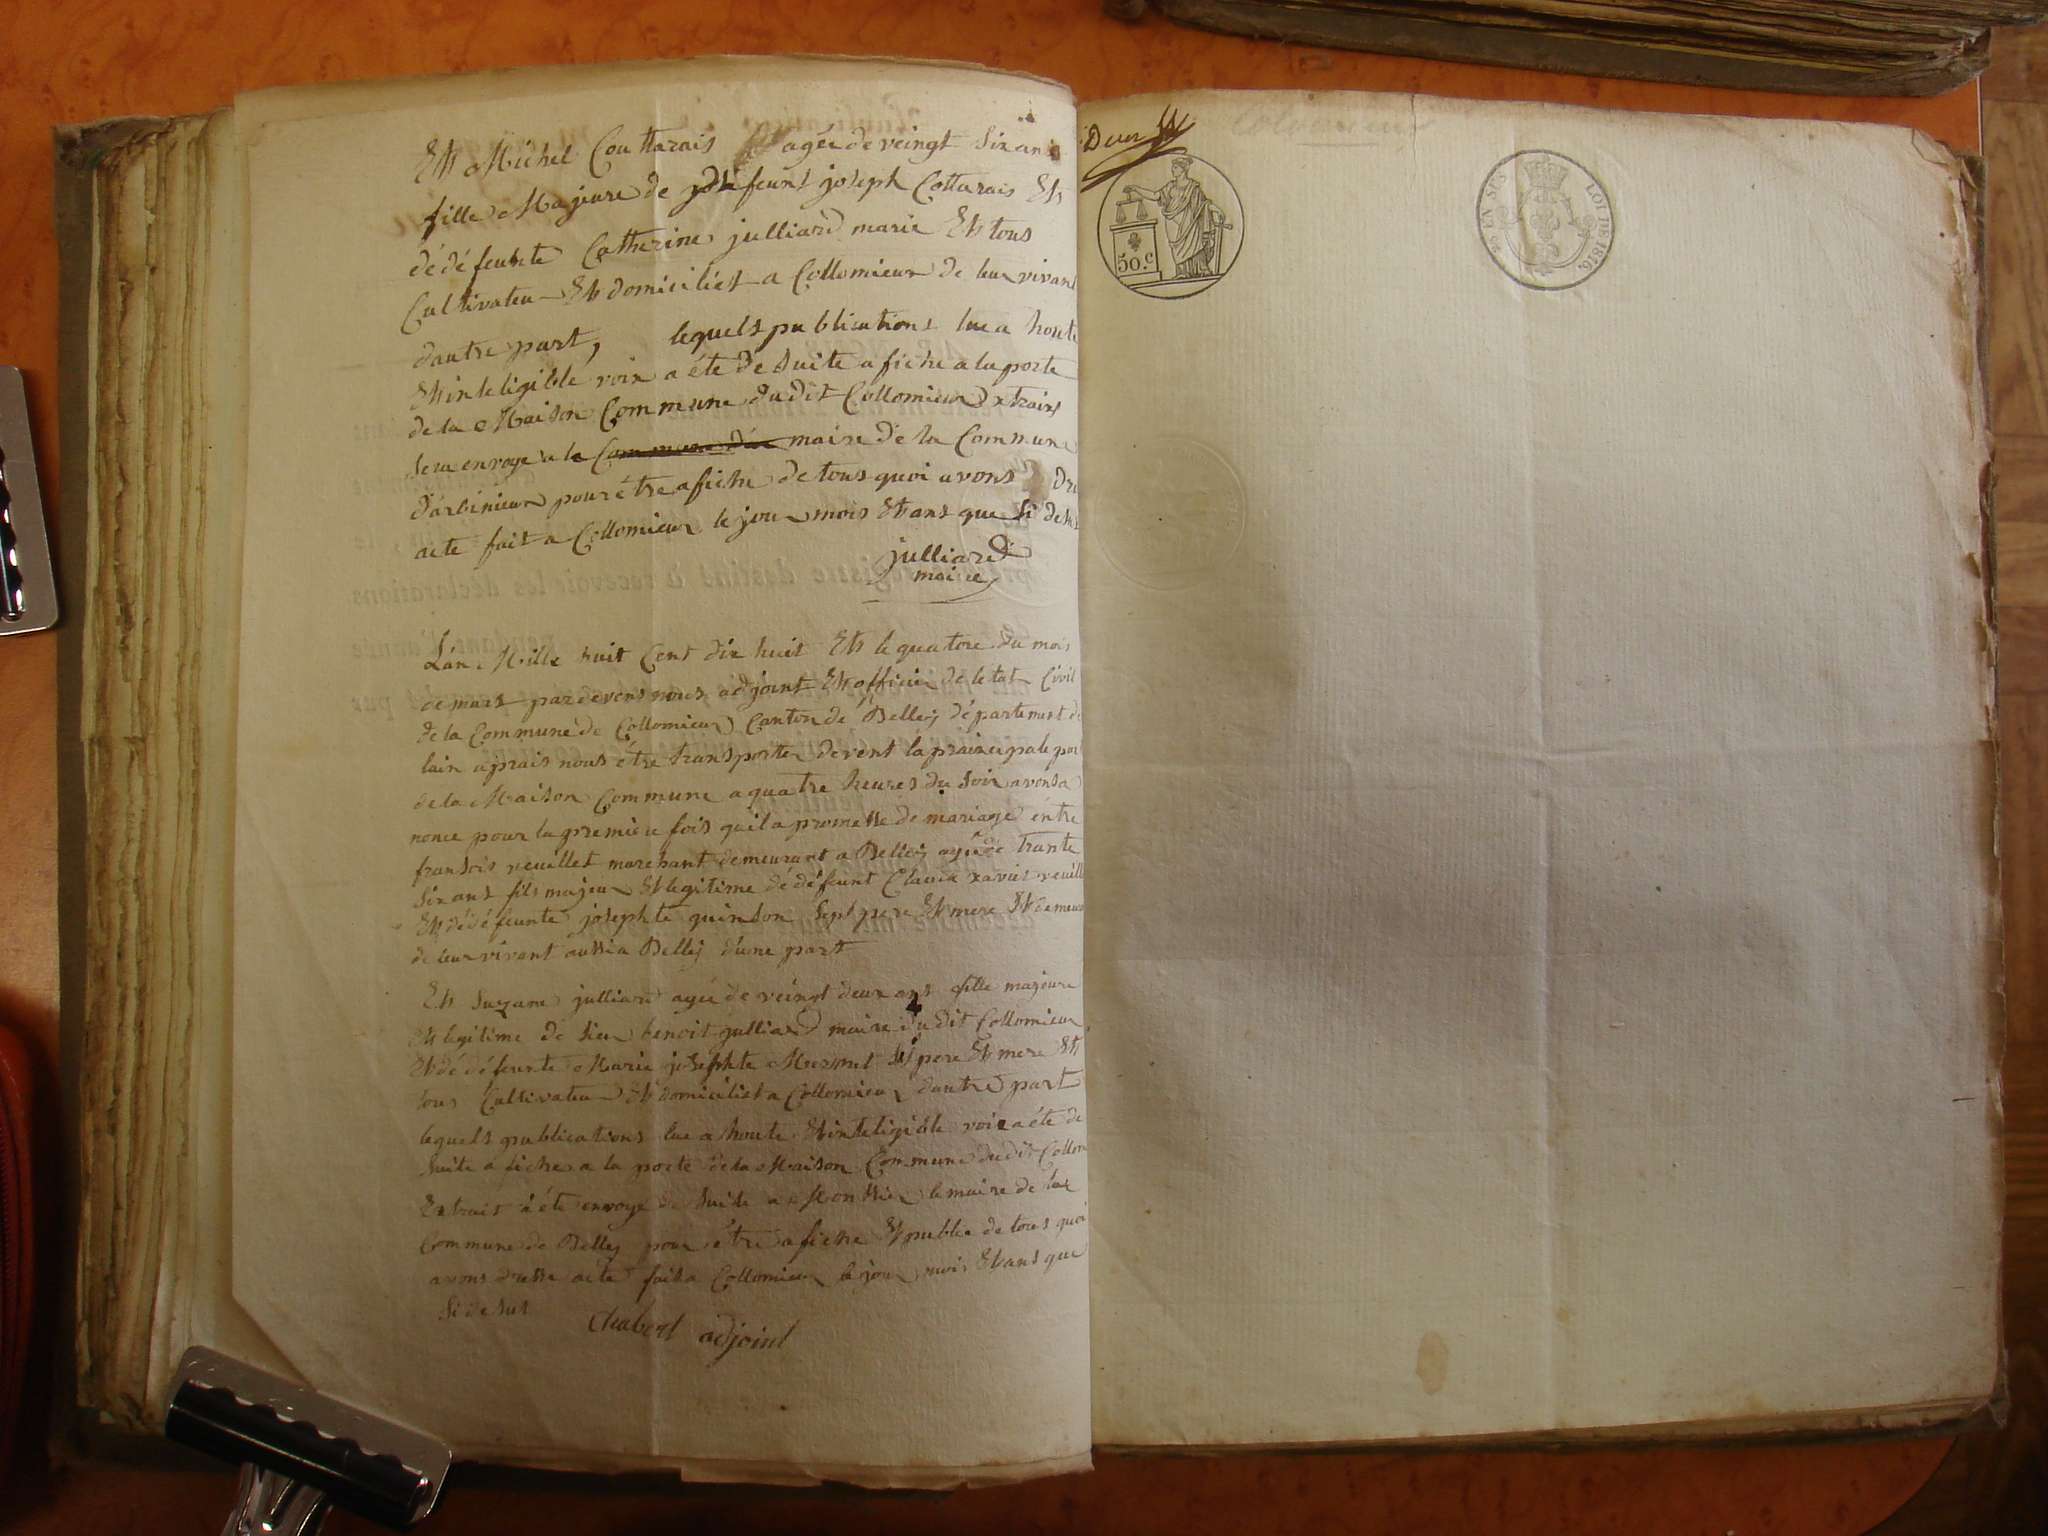 Et Michel Couttarais agée de veingt six ans
fille Majeure de défeunt joseph Cotturais Et
dédéfeunte Catherine julliard marie Et tous
Cultivateu Et domiciliét a Collomieux de leu vivant
dautre part, lequels publications lue a houte
Et inteligible voix a éte de Suite afiche a la porte
de la Maison Commune du dit Collomieux Extrais
Sera envoye a le maire de la Commune
d'arbinieux pour être afiche de tous quoi avons Dre
acte fait a Collomieux le jour mois Et ans que Si desus
julliard
maire
L'an Mille huit Cent dix huit Et le quatore du mois
de mars pardevens nous adjoint Et officier de letat Civil
de la Commune de Collomieux Canton de Belley département de
lain aprais nous être transporter devent la praincipale por
de la Maison Commune a quatre heures du Soir avons a
nonce pour la premiere fois quil a promesse de mariage entre
fransois veuillet marchant demeurant a Belley agé de trante
Six ans fils majeu Et legitime dédéfeunt Claude xavier veuill
Et dédéfeunte josephte quinson Sept pere Et mere Et demeu
de leur vivent aussi a Belley d'une part
Et Suzane julliard agée de veingt deux ans fille majeure
Et legitime de Sieu benoit julliard maire du dit Collomieux
Et dédéfeunte Marie josephte Mermet Ses pere Et mere Et
tous Cultivateu Et domiciliét a Collomieux dautre part
lequels publications lue a houte Et inteligible voix a éte de
Suite afiche a la porte de la Maison Commune du dit Collom
Extrais a éte envoye de Suite a Monssieu le maire de la
Commune de Belley pour être afiche Et publie de tous quoi
avons dresse acte fait a Collomieux le jour mois Et ans que
Si desus
Chabert adjoint
Deux
50.c
EN SUS
LOI DE 1816.